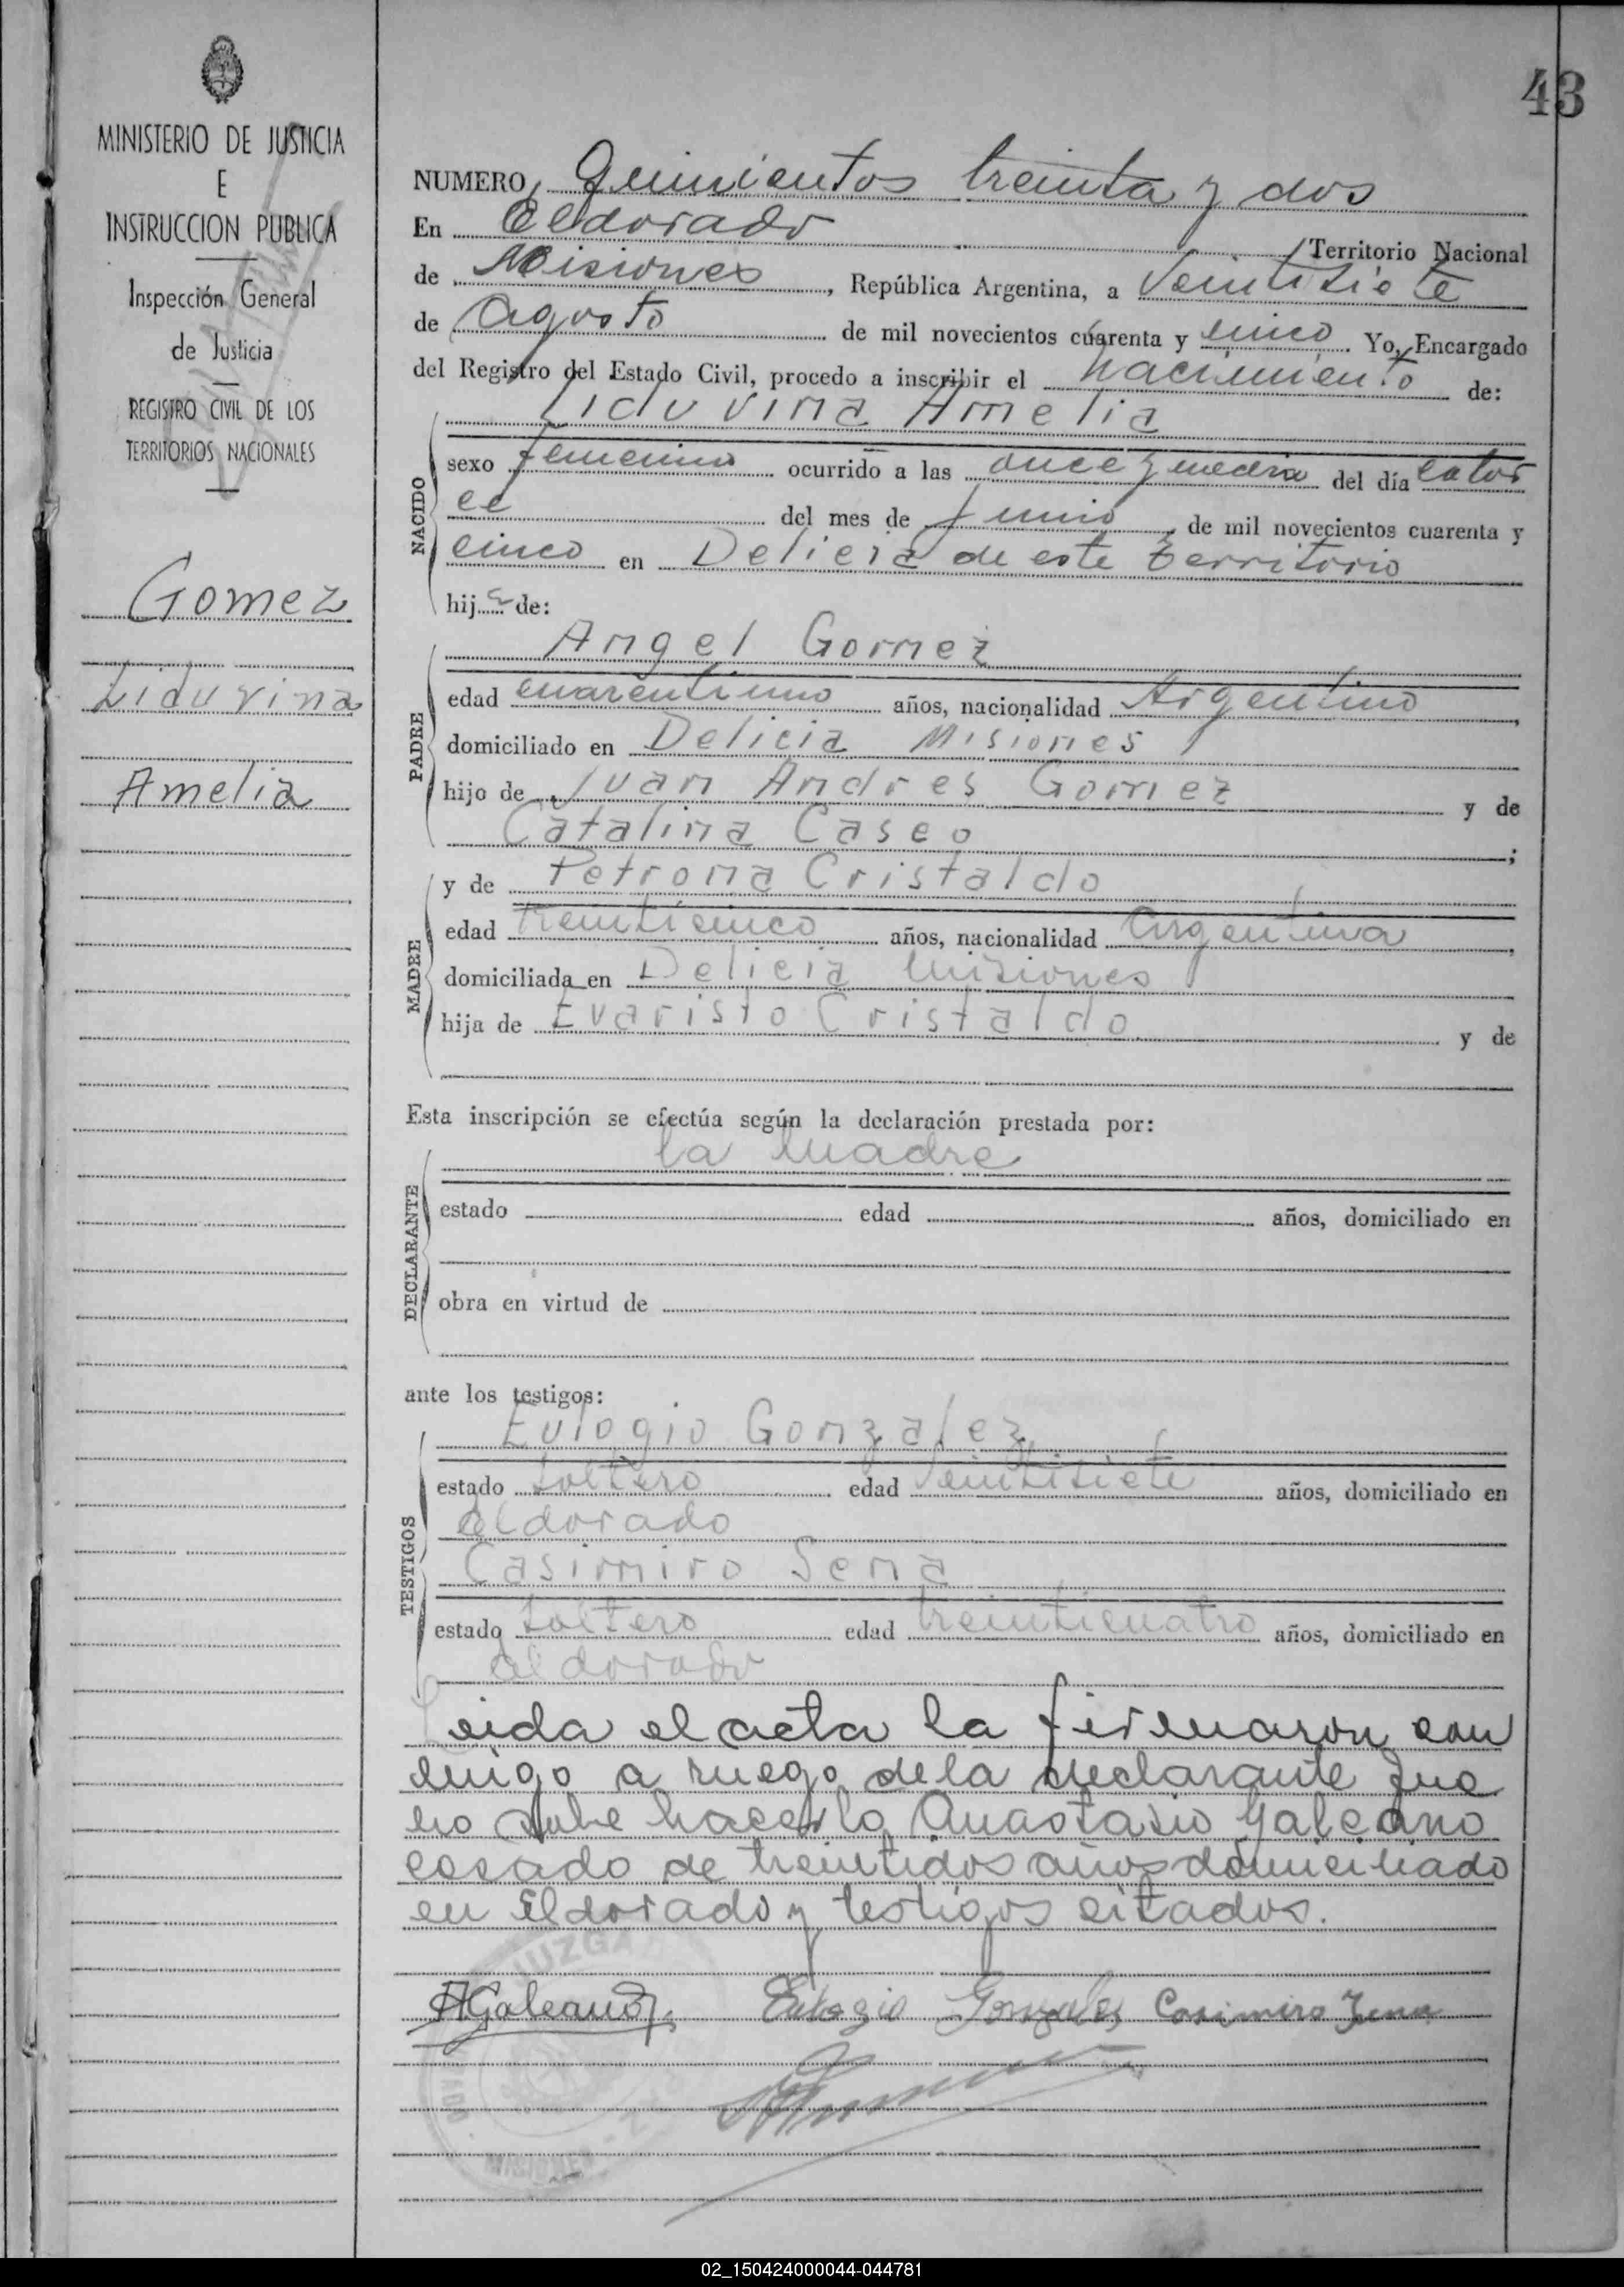 43
MINISTERIO DE JUSTICIA
E
INSTRUCCION PUBLICA
Inspección General
de Justicia
REGISTRO CIVIL DE LOS
TERRITORIOS NACIONALES
Gomez
Liduvina
Amelia
NUMERO Quinientos treinta y dos
En Eldorado Territorio Nacional
de Misiones, República Argentina, a Veintisiete
de Agosto de mil novecientos cuarenta y cinco Yo, Encargado
del Registro del Estado Civil, procedo a inscribir el nacimiento de:
Liduvina Amelia
NACIDO
sexo femenino ocurrido a las once y media del día cator
ce del mes de Junio, de mil novecientos cuarenta y
cinco en Delicia de este territorio
hija de:
Angel Gomez
PADRE
edad cuarentiuno años, nacionalidad Argentino,
domiciliado en Delicia Misiones
hijo de Juan Andres Gomez y de
Catalina Caseo;
y de Petrona Cristaldo
MADRE
edad treinticinco años, nacionalidad Argentina,
domiciliada en Delicia Misiones
hija de Evaristo Cristaldo y de
Esta inscripción se efectúa según la declaración prestada por:
la Madre
DECLARANTE
estado edad años, domiciliado en
obra en virtud de
ante los testigos:
Eulogio Gonzalez
TESTIGOS
estado soltero edad Veintisiete años, domiciliado en
Eldorado
Casimiro Sena
estado soltero edad treinticuatro años, domiciliado en
Eldorado
Leida el acta la firmaron con
migo a ruego de la declarante que
no sabe hacerlo Anastasio Galeano
casado de treintidos años domiciliado
en Eldorado y testigos citados.
JUZGA
AGaleano Eulogio Gonzales Casimiro Zena
MISIONES
02_150424000044-044781